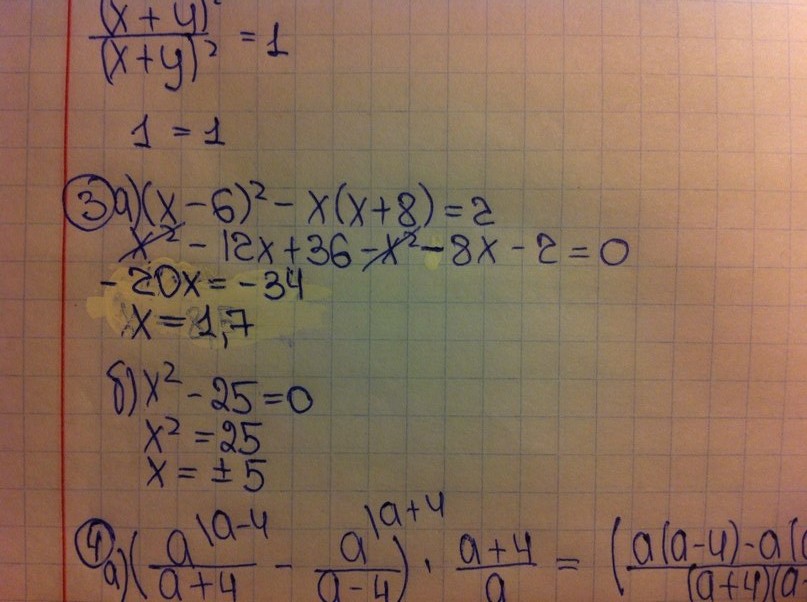 (x + y)²
/ (x + y)² = 1
1 = 1
③ а) (x - 6)² - x(x + 8) = 2
x² - 12x + 36 - x² - 8x - 2 = 0
- 20x = - 34
x = 1,7
б) x² - 25 = 0
x² = 25
x = ± 5
④ а) (a \a-4 / (a + 4) - a \a+4 / (a - 4)) · (a + 4) / a = (a(a-4) - a( / (a+4)(a-